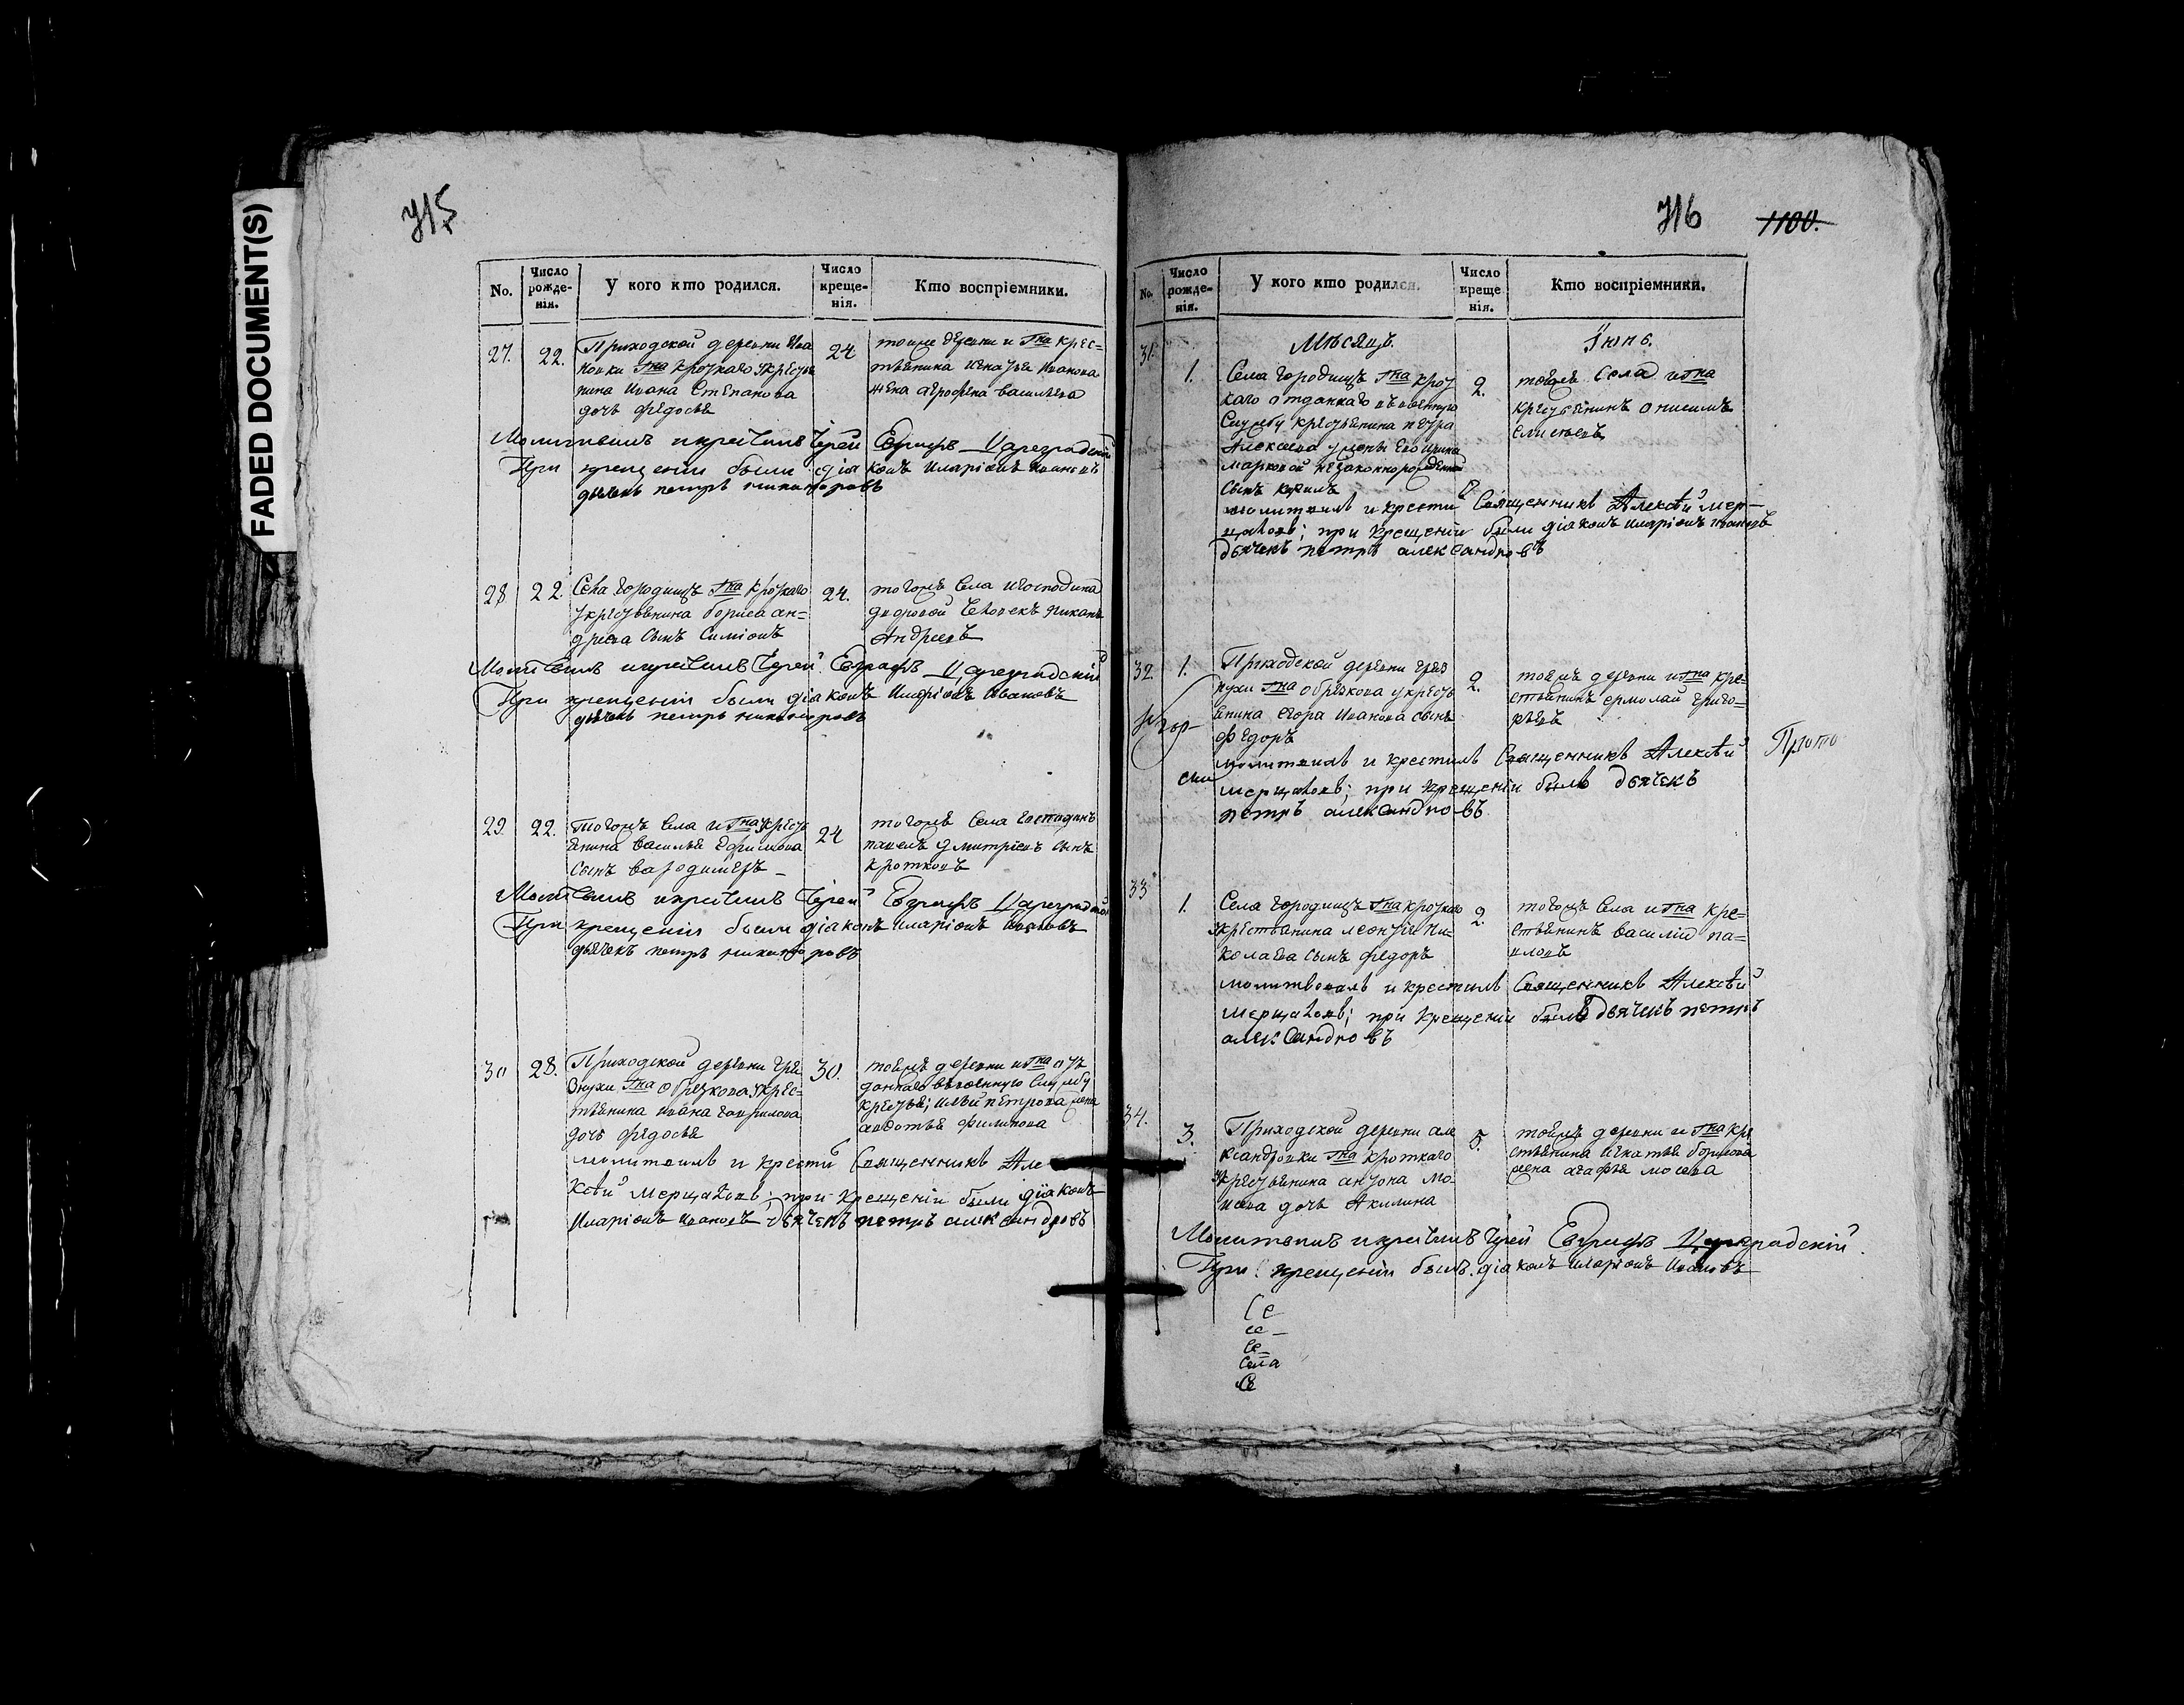 FADED DOCUMENT(S)
715
No.
Число рожденія.
У кого кто родился.
Число крещенія.
Кто воспріемники.
27.
22.
Приходской деревни Ива
новки гна кроткаго укрестья
нина Ивана Степанова
дочь федосья
24
тойже деревни и гна крес=
тьянина Игнатья Иванова
жена агрофена васильева
Молитвилъ икрестилъ Іерей Евграфъ Цареградскій
При крещеніи были діаконъ Иларіонъ Ивановъ
дьячекъ петръ никаноровъ
28
22.
Села городищъ гна кроткаго
укрестьянина бориса ан=
дреева сынъ Симіонъ
24.
тогожъ села игосподина
дворовой человекъ никаноръ
Андреевъ
Молитвилъ икрестилъ Іерей Евграфъ Цареградскій
При крещеніи были діаконъ Иларіонъ Ивановъ
дьячекъ петръ никаноровъ
29.
22.
тогожъ села и гна укресть
янина василья Ефимова
сынъ
24
тогожъ села господинъ
павелъ дмитріевъ сынъ
кротковъ
Молитвилъ икрестилъ Іерей Евграфъ Цареградскій
При крещеніи были діаконъ Иларіонъ Ивановъ
дьячекъ петръ никаноровъ
30
28.
Приходской деревни гря
знухи гна обрезкова укрес=
тьянина Ивана гаврилова
дочь федосья
30.
тойжъ деревни и гна от
даннаго ввоенную службу
крестья; Ильи петрова жена
авдотья филипова
молитвилъ и крести Священникъ Але
ксѣй Мерцаловъ; при крещеніи были діаконъ
Иларіонъ Ивановъ дьячекъ петръ александровъ
716
1100.
No.
Число рожденія.
У кого кто родился.
Число креще нія.
Кто воспріемники.
Мѣсяцъ.
Іюнь.
31.
1.
Села городищъ гна крот
каго отданнаго ввоенную
службу крестьянина петра
Алексеева ужены его Ирины
марковой незаконнорожденной
сынъ
2.
тогожъ села игна
крестьянинъ онисимъ
Елисеевъ
молитвилъ и крести Священникъ Алексѣй мер-
цаловъ; при крещеніи были діаконъ иларіонъ ивановъ
дьячекъ петръ александровъ
32.
1.
Приходской деревни гряз
нухи гна обрезкова укресть
янина егора Иванова сынъ
федоръ
2.
тойжъ деревни игна кре=
стьянинъ ермолай григо=
рьевъ
молитвилъ и крестилъ Священникъ Алексѣй
мерцаловъ; при крещеніи былъ дьячекъ
петръ александровъ
Прото
33
1.
Села городищъ гна кроткаго
укрестьянина леонтія ни=
колаева сынъ федоръ
2
тогожъ села игна кре=
стьянинъ василій па=
вловъ
молитвовалъ и крестилъ Священникъ Алексѣй
мерцаловъ; при крещеніи былъ дьячекъ петръ
александровъ
34.
3.
Приходской деревни але
ксандровки гна кроткаго
укрестьянина антона мо=
сеева дочь Акилина
5.
тойжъ деревни и гна кре
стьянина игнатья борисова
жена агафья мосева
Молитвилъ икрестилъ Іерей Евграфъ Цареградскій.
При крещеніи былъ діаконъ иларіонъ Ивановъ
Се
се
Се
села
Се